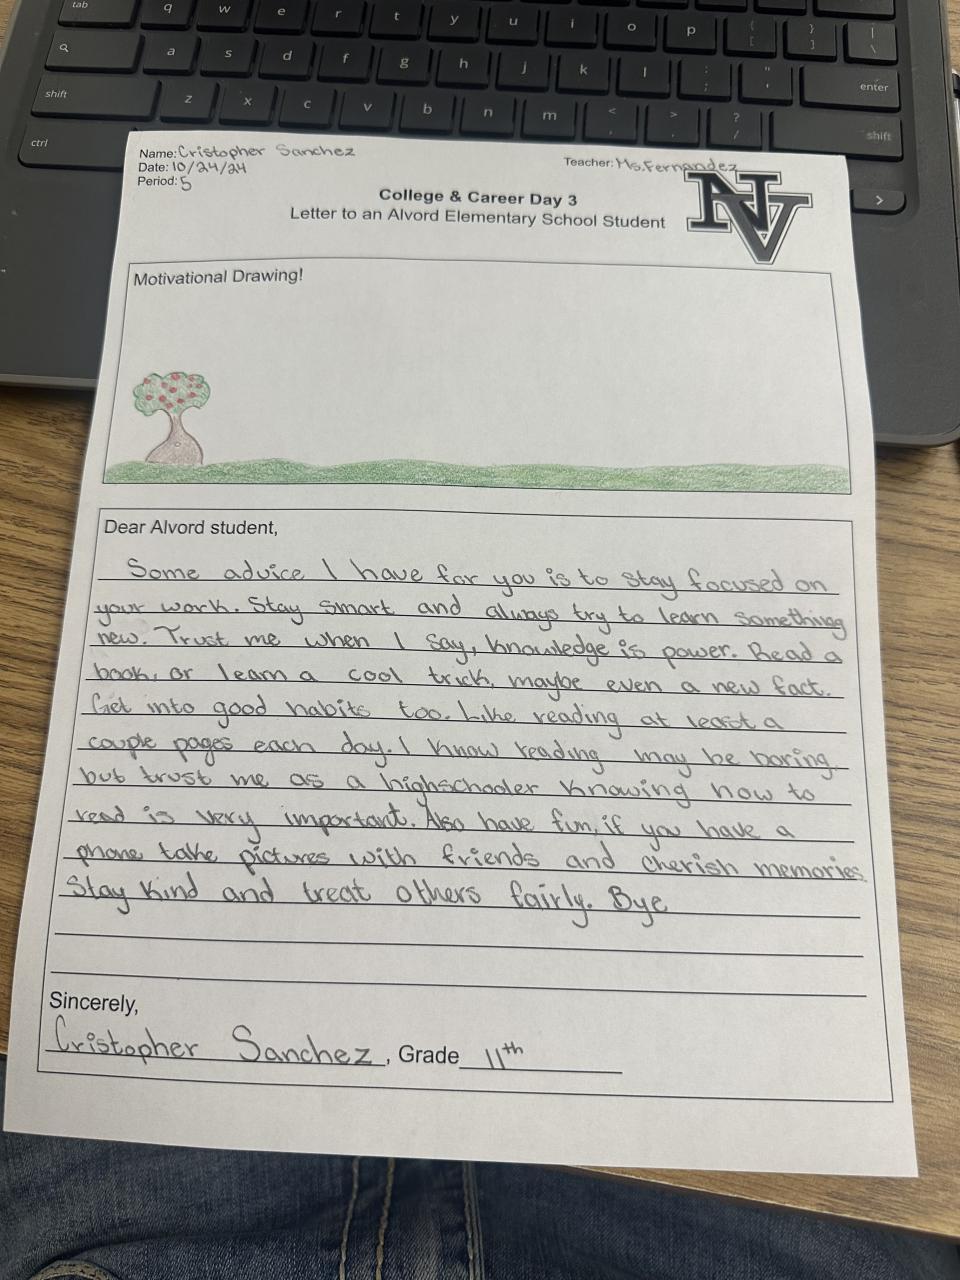 tab q w e r t y u i o p { [ } ] | \
a s d f g h j k l : ; " ' enter
shift z x c v b n m < , > . ? / shift
ctrl >
Name: Cristopher Sanchez
Date: 10/24/24
Period: 5
Teacher: Ms. Fernandez
NV
College & Career Day 3
Letter to an Alvord Elementary School Student
Motivational Drawing!
Dear Alvord student,
Some advice I have for you is to stay focused on
your work. Stay smart and always try to learn something
new. Trust me when I say, knowledge is power. Read a
book, or learn a cool trick, maybe even a new fact.
Get into good habits too. Like reading at least a
couple pages each day. I know reading may be boring
but trust me as a highschooler knowing how to
read is very important. Also have fun, if you have a
phone take pictures with friends and cherish memories.
Stay kind and treat others fairly. Bye
Sincerely,
Cristopher Sanchez, Grade 11th